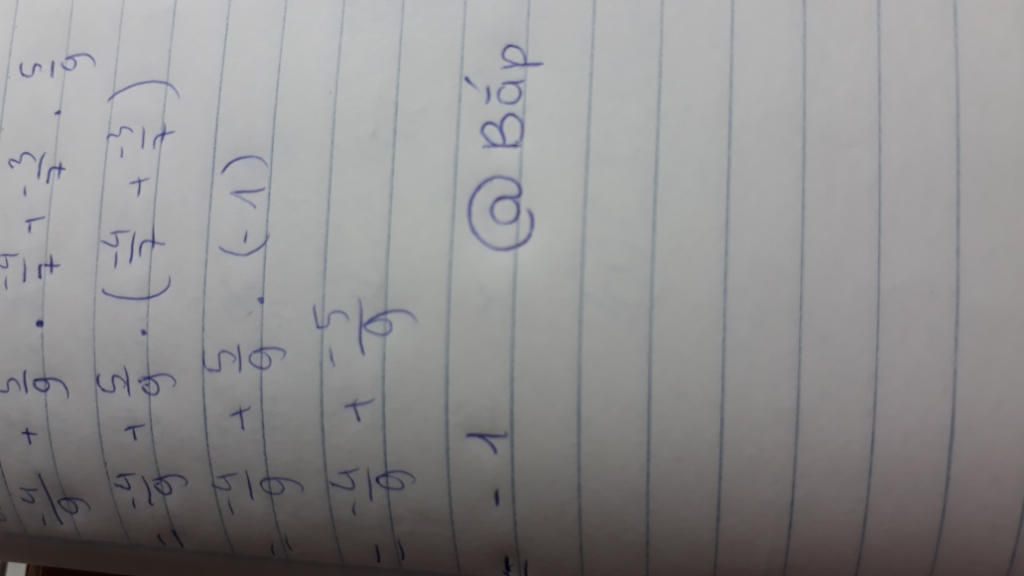 -4/9 + 5/9 . -4/7 + -3/7 . 5/9
= -4/9 + 5/9 . (-4/7 + -3/7)
= -4/9 + 5/9 . (-1)
= -4/9 + -5/9
= -1 @ Bắp